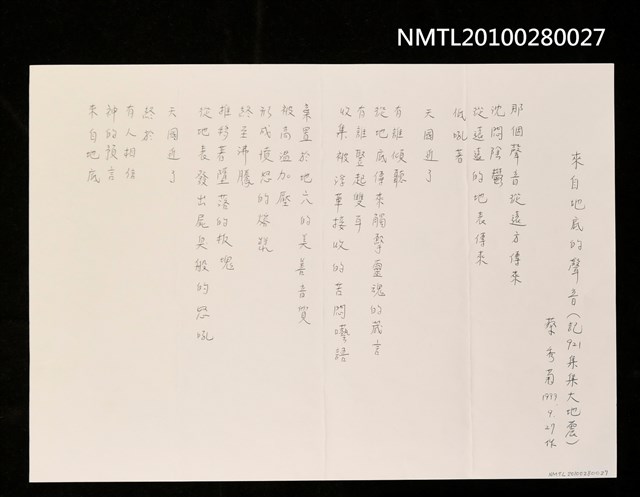 NMTL20100280027
來自地底的聲音(記921集集大地震)
蔡秀菊 1999.9.27作
那個聲音從遠方傳來
沈悶陰鬱
從遠遠的地表傳來
低吼著
天國近了
有誰傾聽
從地底傳來觸擊靈魂的箴言
有誰豎起雙耳
收集被浮華接收的苦悶囈語
棄置於地穴的美善音質
被高溫加壓
形成憤怒的熔漿
終至沸騰
推擠著墮落的板塊
從地表發出屍臭般的怒吼
天國近了
終於
有人相信
神的預言
來自地底
NMTL20100280027